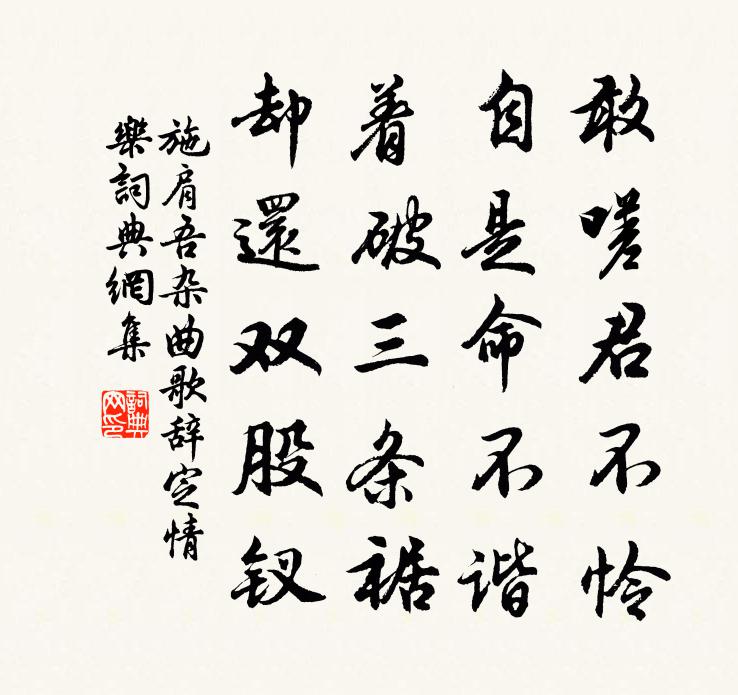 敢嗟君不怜
自是命不谐
着破三条裾
却還双股钗
施肩吾杂曲歌辞定情
樂詞典網集
詞典网印